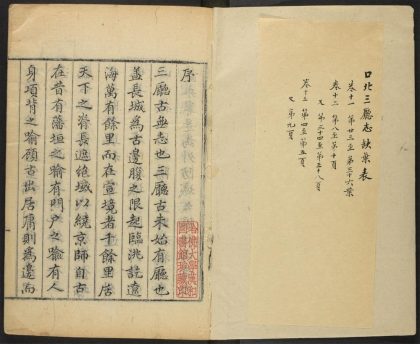 口北三廳志缺葉表
卷十一 第廿三至第三十六葉
卷十二 第八至第十頁
又 第三十四至第三十八頁
卷十三 第四至第五頁
又 第九頁
序
三廳古無志也三廳古未始有廳也
蓋長城為古邊腹之限起臨洮訖遼
海萬有餘里而在宣境者千餘里居
天下之脊長遮絶域以繞京師自古
在昔有藩垣之喻有門户之喻有人
身項背之喻顧古出居庸則為邊而